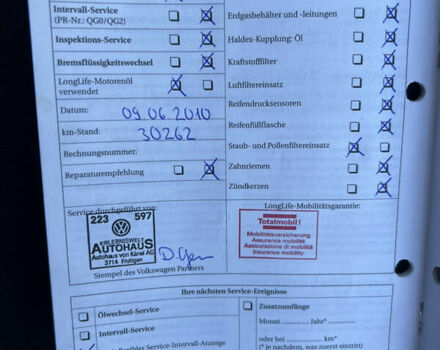 Intervall-Service
(PR-Nr.: QG0/QG2)
Inspektions-Service
Bremsflüssigkeitswechsel
LongLife-Motorenöl
verwendet
Datum: 09.06.2010
km-Stand: 30262
Rechnungsnummer:
Reparaturempfehlung
Erdgasbehälter und -leitungen
Haldex-Kupplung: Öl
Kraftstofffilter
Luftfiltereinsatz
Reifendrucksensoren
Reifenfüllflasche
Staub- und Pollenfiltereinsatz
Zahnriemen
Zündkerzen
Service durchgeführt von:
223 597
ERLEBNISWELT
AUTOHAUS
Autohaus von Känel AG
3714 Frutigen
Stempel des Volkswagen Partners
LongLife-Mobilitätsgarantie:
Totalmobil!
Mobilitätsversicherung
Assurance mobilité
Assicurazione di mobilità
Insurance mobility
Ihre nächsten Service-Ereignisse
Ölwechsel-Service
Intervall-Service
Service-Intervall-Anzeige
Zusatzumfänge
Monat Jahr*
oder bei km*
(* je nachdem, was zuerst eintritt)